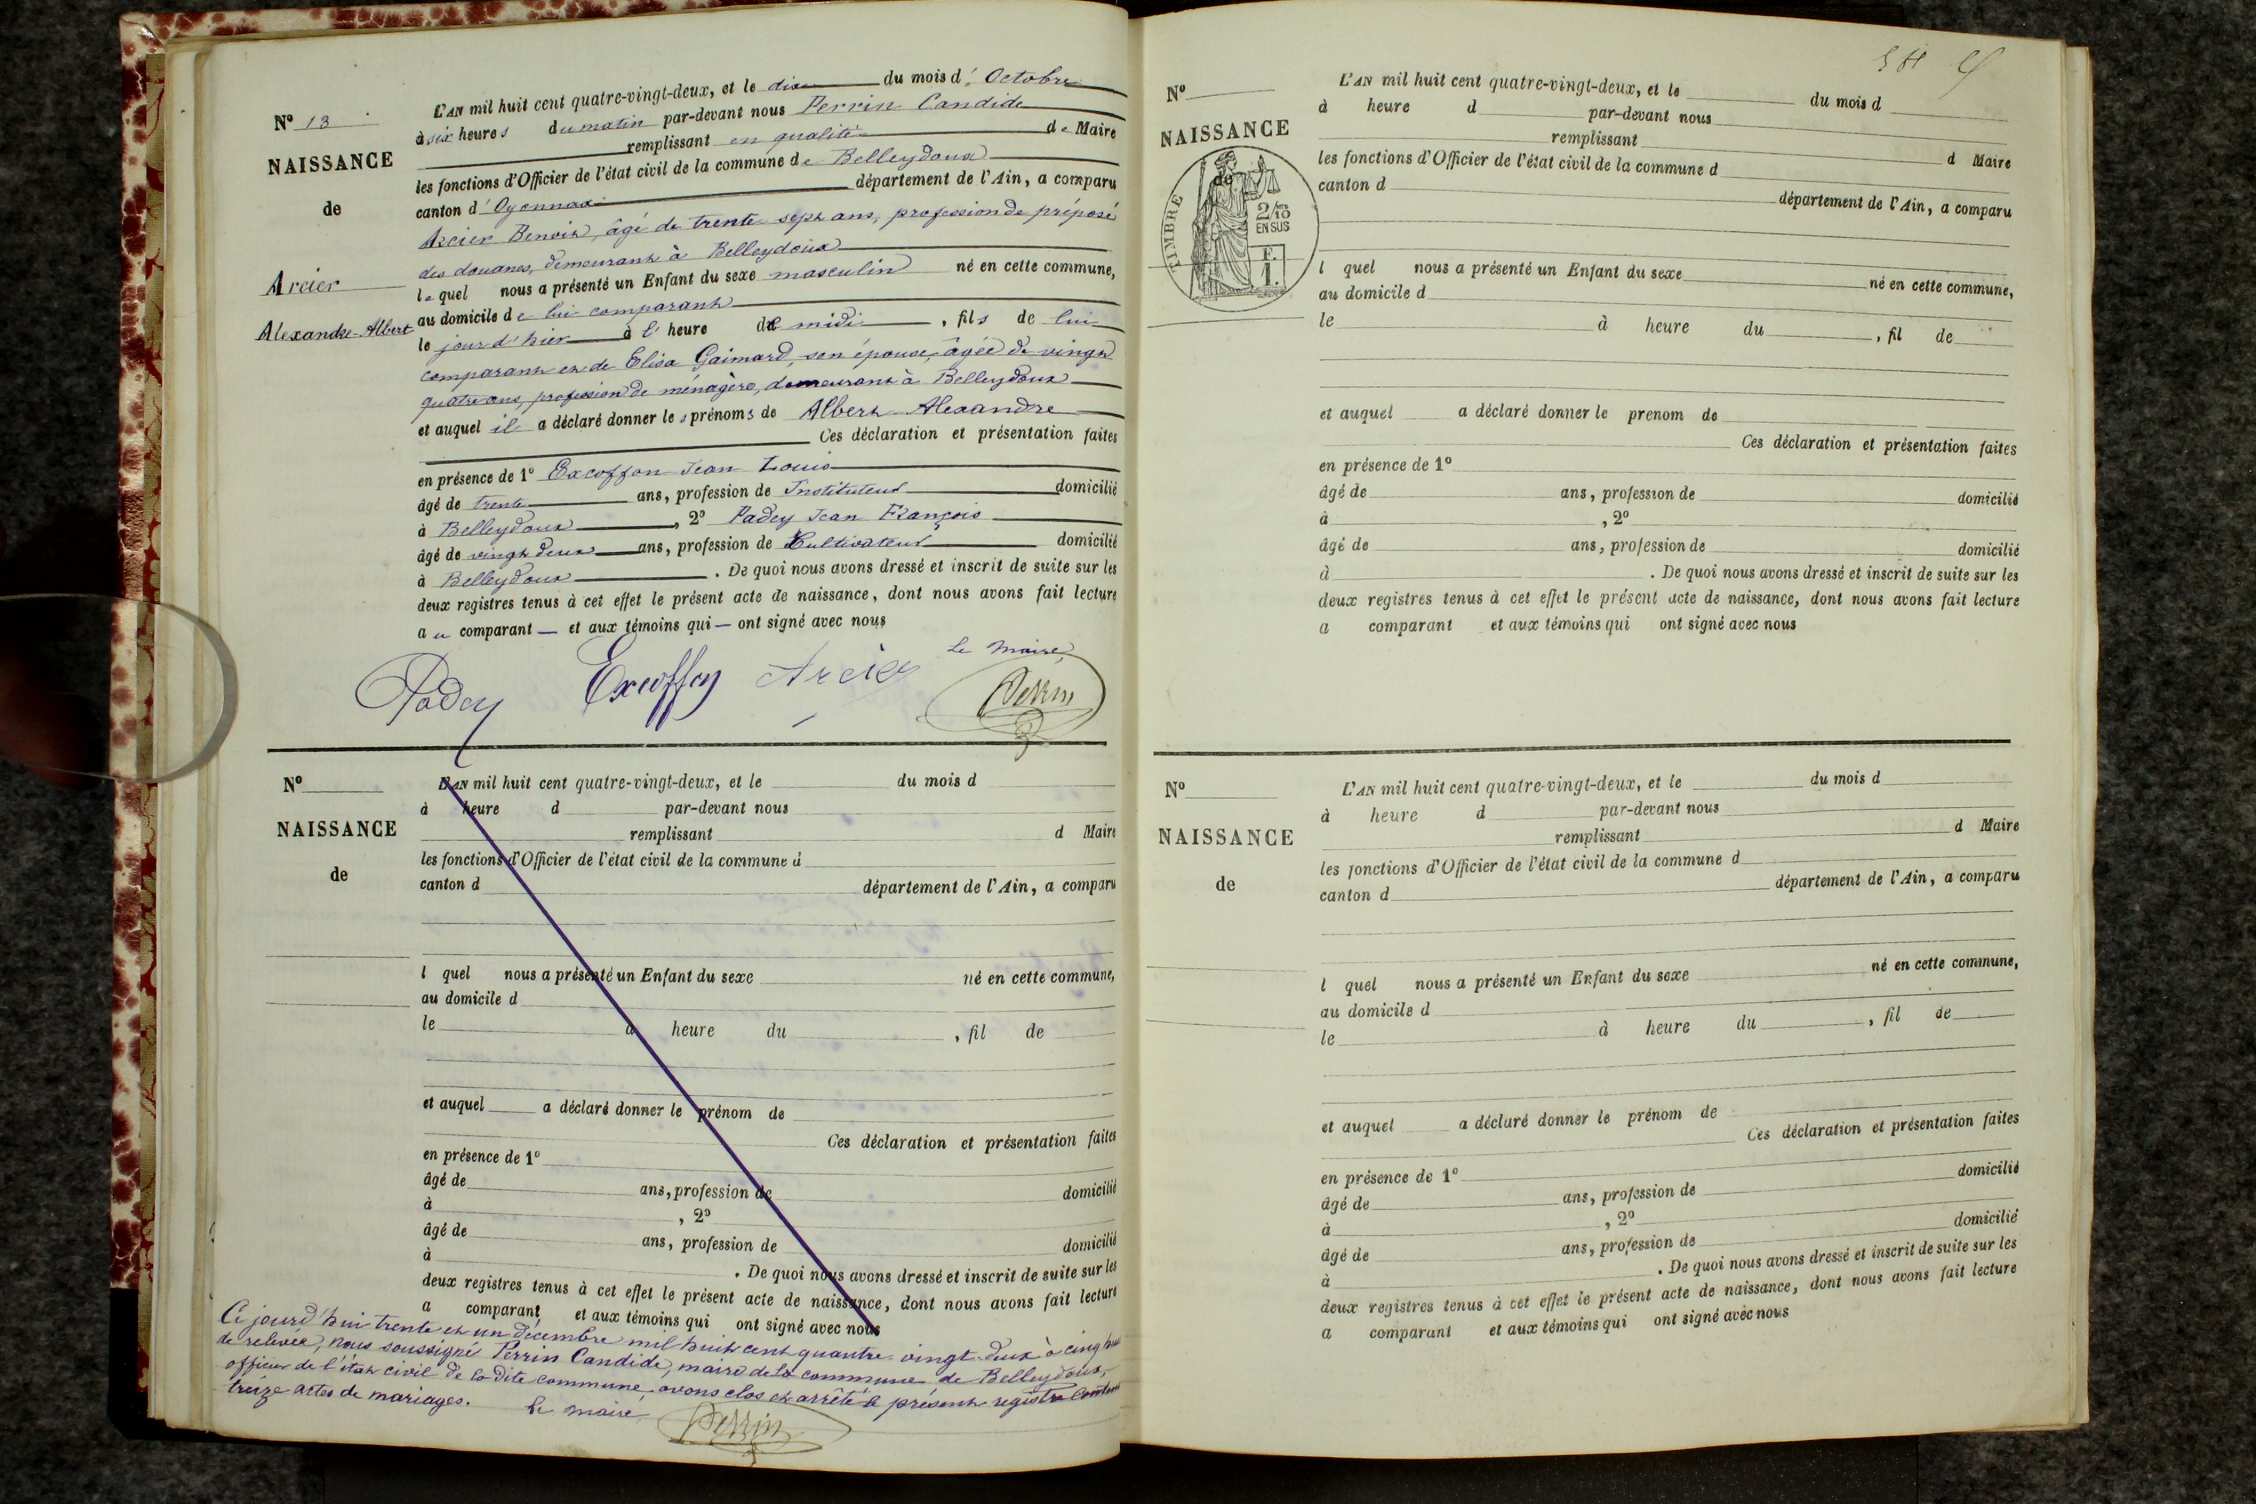 N° 13
NAISSANCE
de
Arcier
Alexandre Albert
L'AN mil huit cent quatre-vingt-deux, et le dix du mois d' Octobre
à six heures du matin par-devant nous Perrin Candide
remplissant en qualité de Maire
les fonctions d'Officier de l'état civil de la commune de Belleydoux
canton d' Oyonnax département de l'Ain, a comparu
Arcier Benoit, âgé de trente sept ans, profession de préposé
des douanes, demeurant à Belleydoux
lequel nous a présenté un Enfant du sexe masculin né en cette commune,
au domicile de lui comparant
le jour d'hier à l' heure de midi, fils de lui
comparant et de Elisa Gaimard, son épouse, âgée de vingt
quatre ans, profession de ménagère, demeurant à Belleydoux
et auquel il a déclaré donner les prénoms de Albert Alexandre
Ces déclaration et présentation faites
en présence de 1° Excoffon Jean Louis
âgé de trente ans, profession de Instituteur domicilié
à Belleydoux, 2° Padey Jean François
âgé de vingt deux ans, profession de Cultivateur domicilié
à Belleydoux. De quoi nous avons dressé et inscrit de suite sur les
deux registres tenus à cet effet le présent acte de naissance, dont nous avons fait lecture
au comparant et aux témoins qui ont signé avec nous
Le maire,
Padey Excoffon Arcier Perrin
N°
NAISSANCE
de
L'AN mil huit cent quatre-vingt-deux, et le du mois d
à heure d par-devant nous
remplissant d Maire
les fonctions d'Officier de l'état civil de la commune d
canton d département de l'Ain, a comparu
l quel nous a présenté un Enfant du sexe né en cette commune,
au domicile d
le à heure du , fil de
et auquel a déclaré donner le prénom de
Ces déclaration et présentation faites
en présence de 1°
âgé de ans, profession de domicilié
à , 2°
âgé de ans, profession de domicilié
à . De quoi nous avons dressé et inscrit de suite sur les
deux registres tenus à cet effet le présent acte de naissance, dont nous avons fait lecture
a comparant et aux témoins qui ont signé avec nous
Ce jourd'hui trente et un décembre mil huit cent quantre vingt deux à cinq
de relevée, nous soussigné Perrin Candide, maire de la commune de Belleydoux,
officier de l'état civil de la dite commune, avons clos et arrêté le présent registre
treize actes de mariages. Le maire,
Perrin
N°
NAISSANCE
de
TIMBRE
2/10
EN SUS
F.
1.
L'AN mil huit cent quatre-vingt-deux, et le du mois d
à heure d par-devant nous
remplissant d Maire
les fonctions d'Officier de l'état civil de la commune d
canton d département de l'Ain, a comparu
l quel nous a présenté un Enfant du sexe né en cette commune,
au domicile d
le à heure du , fil de
et auquel a déclaré donner le prenom de
Ces déclaration et présentation faites
en présence de 1°
âgé de ans, profession de domicilié
à , 2°
âgé de ans, profession de domicilié
à . De quoi nous avons dressé et inscrit de suite sur les
deux registres tenus à cet effet le présent acte de naissance, dont nous avons fait lecture
a comparant et aux témoins qui ont signé avec nous
N°
NAISSANCE
de
L'AN mil huit cent quatre-vingt-deux, et le du mois d
à heure d par-devant nous
remplissant d Maire
les fonctions d'Officier de l'état civil de la commune d
canton d département de l'Ain, a comparu
l quel nous a présenté un Enfant du sexe né en cette commune,
au domicile d
le à heure du , fil de
et auquel a déclaré donner le prénom de
Ces déclaration et présentation faites
en présence de 1°
âgé de ans, profession de domicilié
à , 2°
âgé de ans, profession de domicilié
à . De quoi nous avons dressé et inscrit de suite sur les
deux registres tenus à cet effet le présent acte de naissance, dont nous avons fait lecture
a comparant et aux témoins qui ont signé avec nous